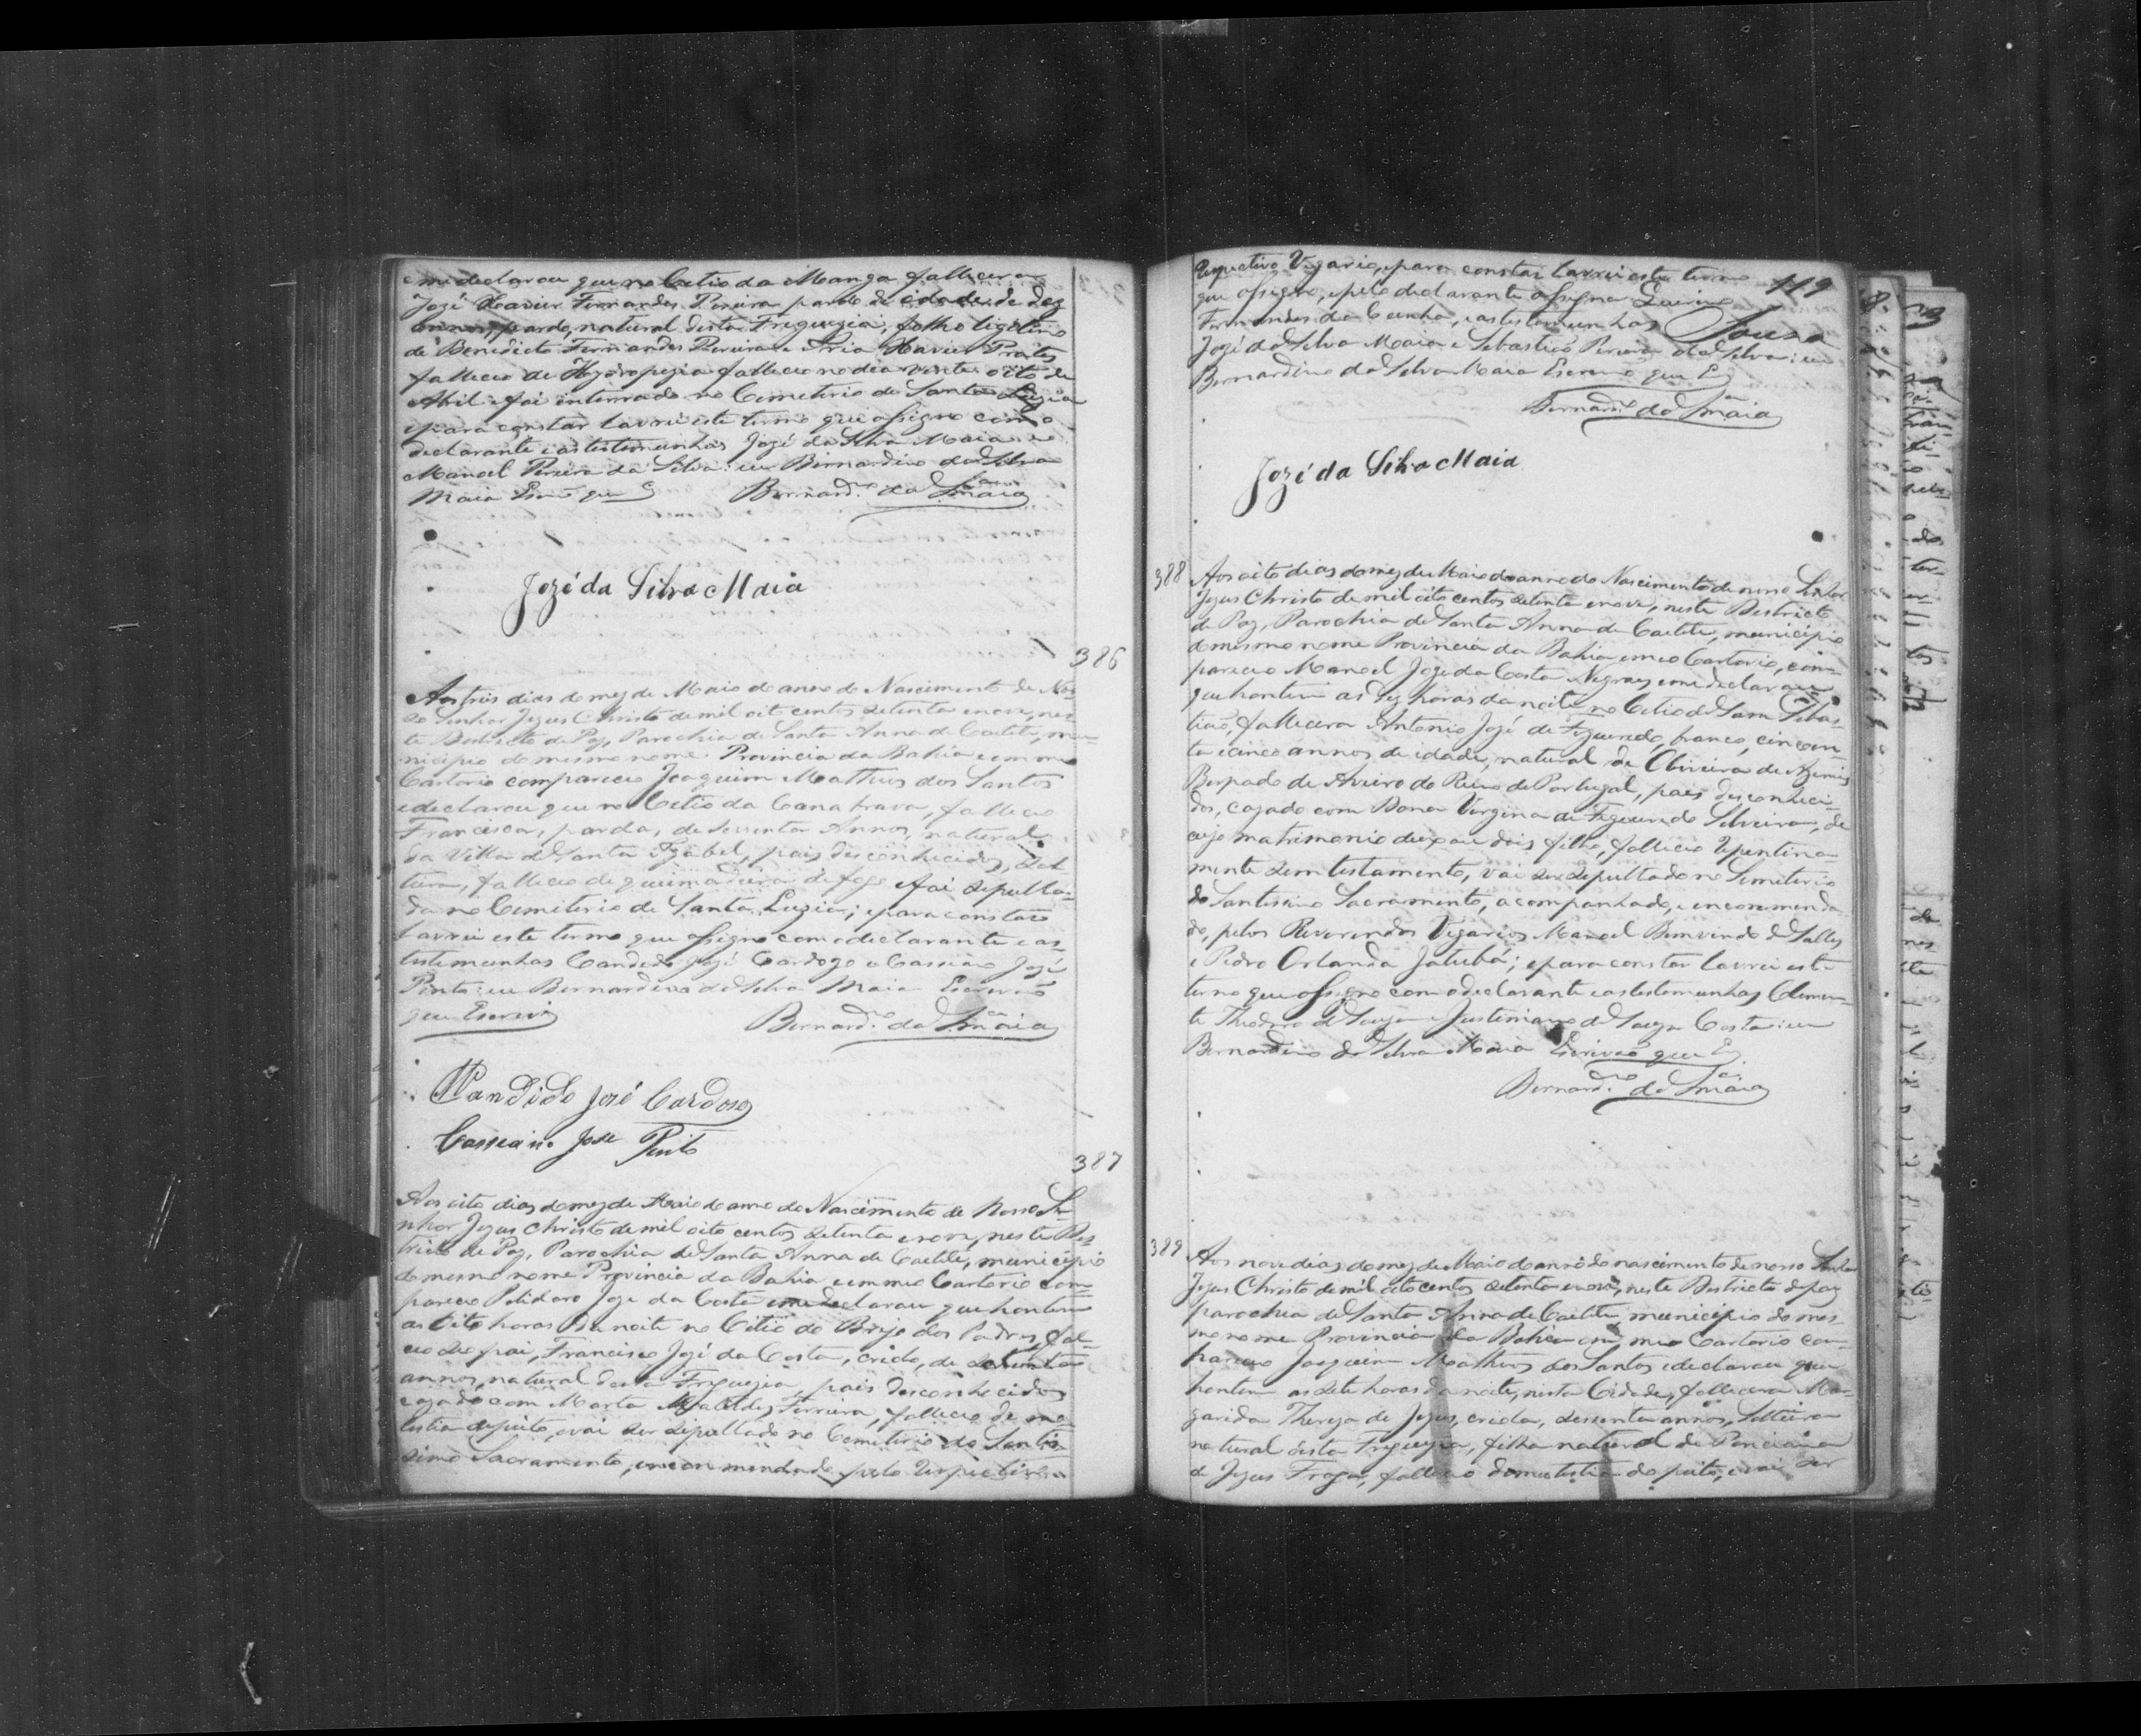 e me declarou que no Citio da Manga fallecera
Jozé Xavier Fernandes Pereira pardo de idade de dez
annos, pardo, natural desta Freguezia, filho ligitimo
de Benedicto Fernandes Pereira e Xavier Prates
falleceo de Hydropezia falleceo no dia vinte oito de
Abril e foi interrado no Cemiterio de Santa Luzia
e para constar lavrei este termo que assigno com o
declarante e as testemunhas Jozé da Silva Maia e
Manoel Pereira da Silva: eu Bernardino da Silva
Maia Escm que E Bernard.no da S.a Maia
Jozé da Silva Maia
386
Aos tres dias do mez de Maio do anno do Nascimento de Nos-
so Senhor Jezus Christo de mil oito centos setenta e nove, nes-
te Destricto de Paz, Parochia de Santa Anna de Caetité, mu-
nicipio do mesmo nome Provincia da Bahia em meo
Cartorio compareceo Joaquim Matheus dos Santos
e declarou que no Citio da Cana brava, falleceo
Francisca, parda, de sessenta Annos, natural
da Villa de Santa Izabel, pais desconhecidos, Sol-
teira, falleceo de queimadura de fogo e foi sepulta-
da no Cemiterio de Santa Luzia; e para constar
lavrei este termo que assigno com o declarante e as
testemunhas Candido Jozé Cardozo e Cassiano Jozé
Pinto: eu Bernardino da Silva Maia Escrivão
que Escrevi Bernard.no da S.a Maia
Candido José Cardoso
Casseano Jose Pinto
387
Aos oito dias do mez de Maio do anno do Nascimento de Nosso Se-
nhor Jezus Christo de mil oito centos setenta e nove, neste Des-
tricto de Paz, Parochia de Santa Anna de Caetité, municipio
do mesmo nome Provincia da Bahia em meo Cartorio com-
pareceo Polidoro Joze da Costa e me declarou que hontem
as oito horas da noite no Citio do Brejo dos Padres, fal-
ceo seo pai, Francisco Jozé da Costa, criolo, de setenta
annos, natural desta Freguezia, pais desconhecidos
cazado com Marta Ferreira, falleceo de mo-
lestia de peito, e vai ser sepultado no Cemiterio do Santis-
simo Sacramento, encommendado pelo respectivo
119
respectivo Vigario, e para constar lavrei este termo
que assigno, e pelo declarante assigna
Fernandes da Cunha, e as testemunhas Souza
Jozé da Silva Maia e Sebastião Pereira da Silva: eu
Bernardino da Silva Maia Escrivão que E
Bernard.no da S.a Maia
Jozé da Silva Maia
388
Aos oito dias do mez de Maio do anno do Nascimento de nosso Senhor
Jezus Christo de mil oito centos setenta e nove, neste Destricto
de Paz, Parochia de Santa Anna de Caetité, municipio
do mesmo nome Provincia da Bahia em meo Cartorio, com-
pareceo Manoel Joze da Costa Negraes, e me declarou
que hontem as dez horas da noite no Citio de Sam Sebas-
tião, fallecera Antonio Jozé de Figueredo, branco, cincoen-
ta e cinco annos de idade, natural de Oliveira de Azemeis
Bispado de Aveiro do Reino de Portugal, pais desconheci-
dos, cazado com Dona Vergina de Figueredo Silveira, de
cujo matrimonio deixou dois filhos, falleceo repentina-
mente sem testamento, vai ser sepultado no Semiterio
do Santissimo Sacramento, acompanhado, e encommenda-
do, pelos Reverendos Vigarios Manoel Bemvindo de Salles
e Pedro Orlanda Jatubá; e para constar lavrei este
termo que assigno com o declarante e as testemunhas Clemen-
te Theodoro de Souza e Justiniano de Souza Costa: eu
Bernardino da Silva Maia Escrivão que E
Bernard.no da S.a Maia
389
Aos nove dias do mez de Maio do anno do nascimento de nosso Senhor
Jezus Christo de mil oito centos setenta e nove, neste Destricto de paz
parochia de Santa Anna de Caetité, municipio do mes-
mo nome Provincia da Bahia em meo Cartorio com-
pareceo Joaquim Matheus dos Santos e declarou que
hontem as sete horas da noite, nesta Cidade, fallecera Ma-
garida Thereza de Jezus, criola, sessenta annos, Solteira
natural desta Freguezia, filha natural de Ponciana
de Jezus Fraga, falleceo de molestia do peito, e vai ser